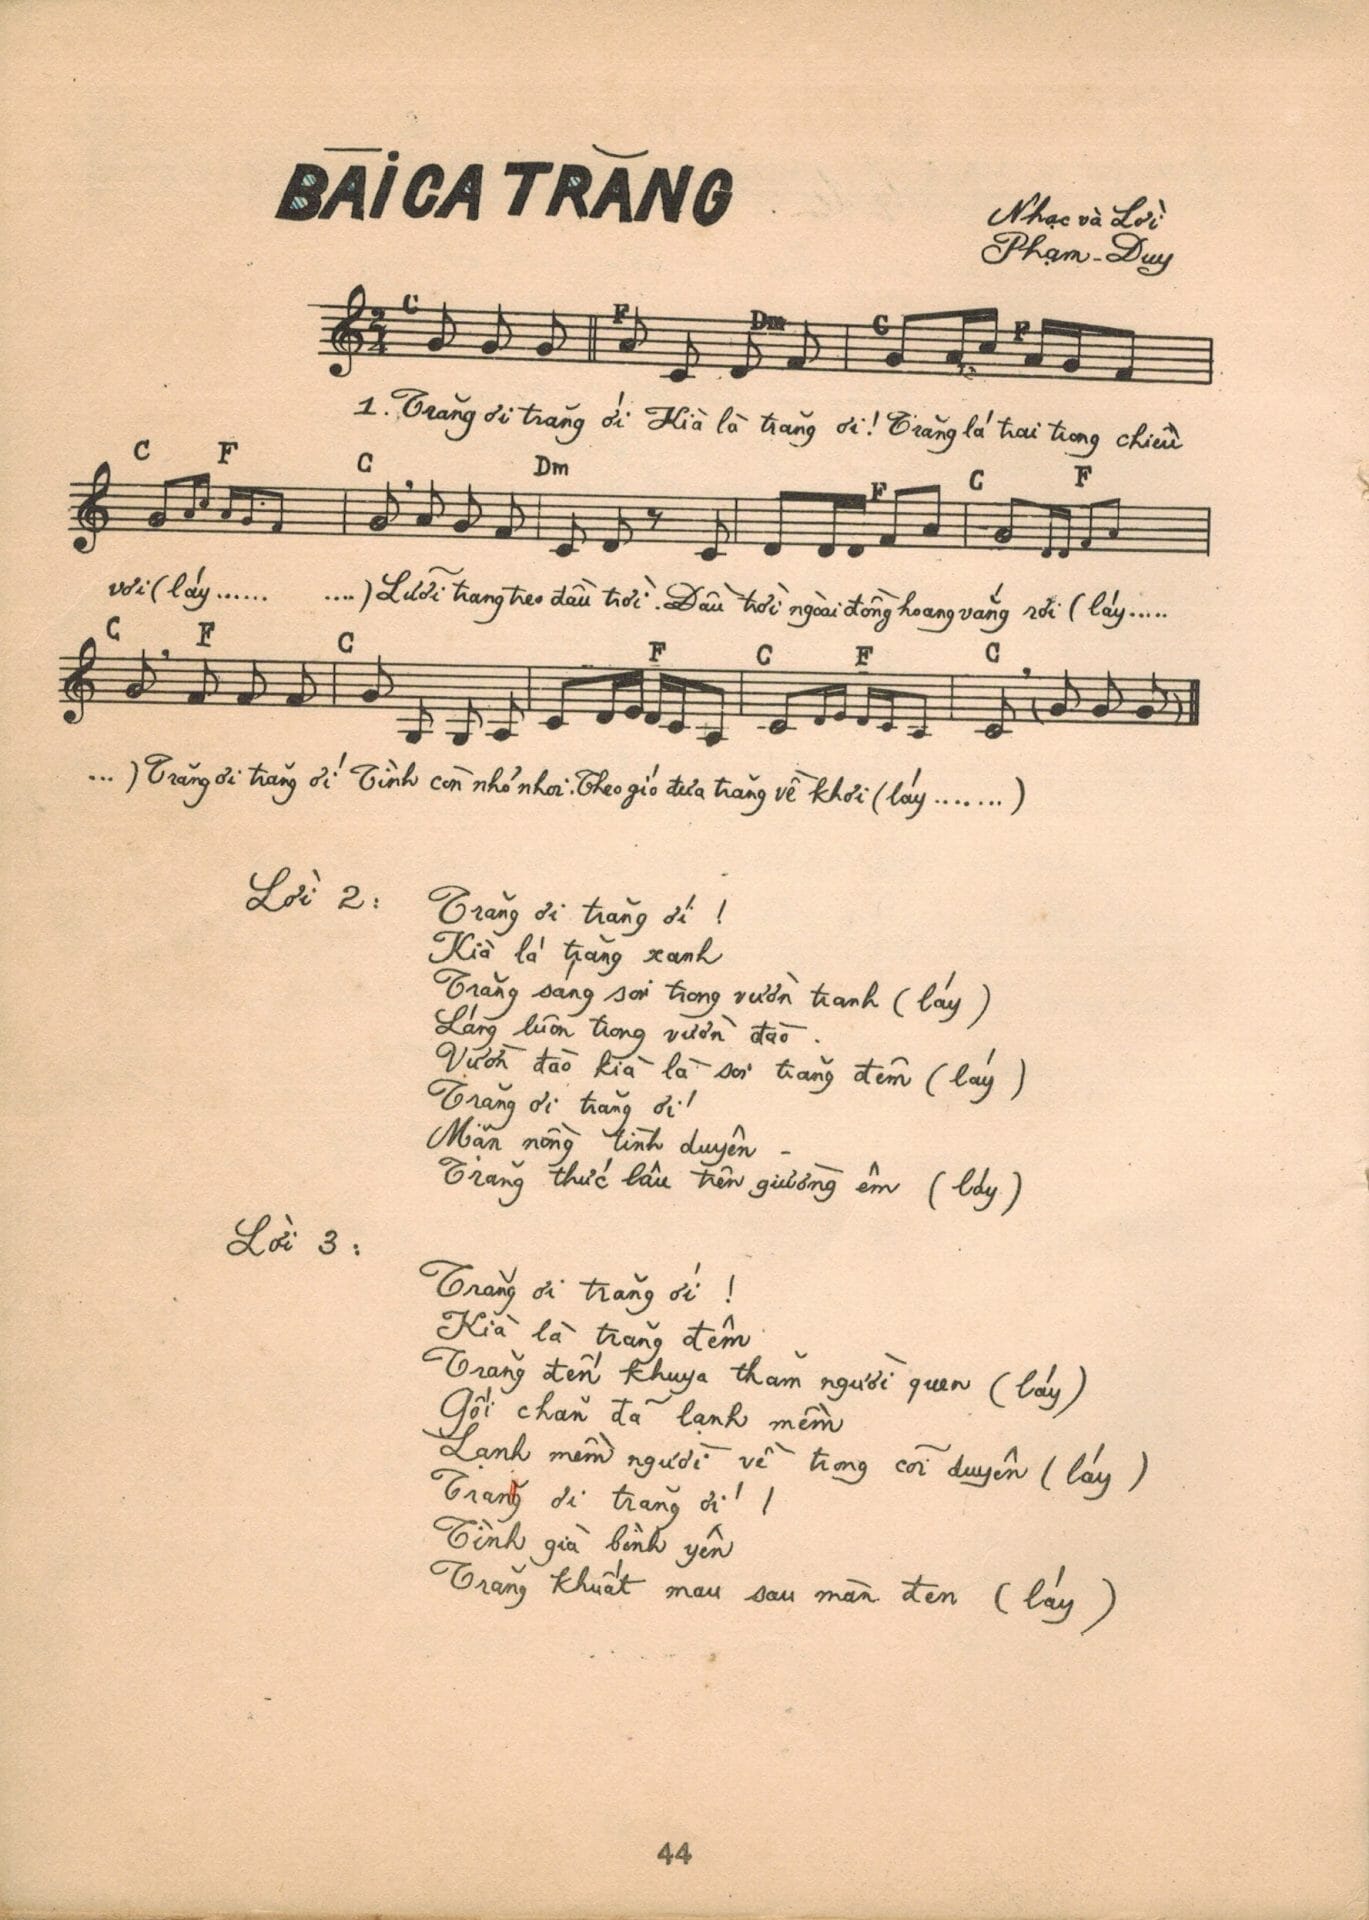 BÀI CA TRĂNG
Nhạc và Lời
Phạm - Duy
C F Dm C F
2/4
1. Trăng ơi trăng ới Kià là trăng ơi! Trăng lá trai trong chiều
C F C Dm F C F
vơi (láy ...... ....) Lưỡi trang treo đầu trời. Đầu trời ngoài đồng hoang vắng rơi (láy .....
C F C F C F C
... ) Trăng ơi trăng ới Tình còn nhỏ nhoi. Theo gió đưa trăng về khơi (láy ....... )
Lời 2 :
Trăng ơi trăng ới !
Kià lá trăng xanh
Trăng sáng soi trong vườn tranh ( láy )
Láng luôn trong vườn đào .
Vườn đào kià là soi trăng đêm ( láy )
Trăng ơi trăng ới
Mặn nồng tình duyên -
Trăng thức lâu trên giường êm ( láy )
Lời 3 :
Trăng ơi trăng ới !
Kià là trăng đêm
Trăng đến khuya thăm người quen ( láy )
Gối chăn đã lạnh mềm
Lạnh mềm người về trong cõi duyên ( láy )
Trăng ơi trăng ới !
Tình già bình yên
Trăng khuất mau sau màn đen ( láy )
44